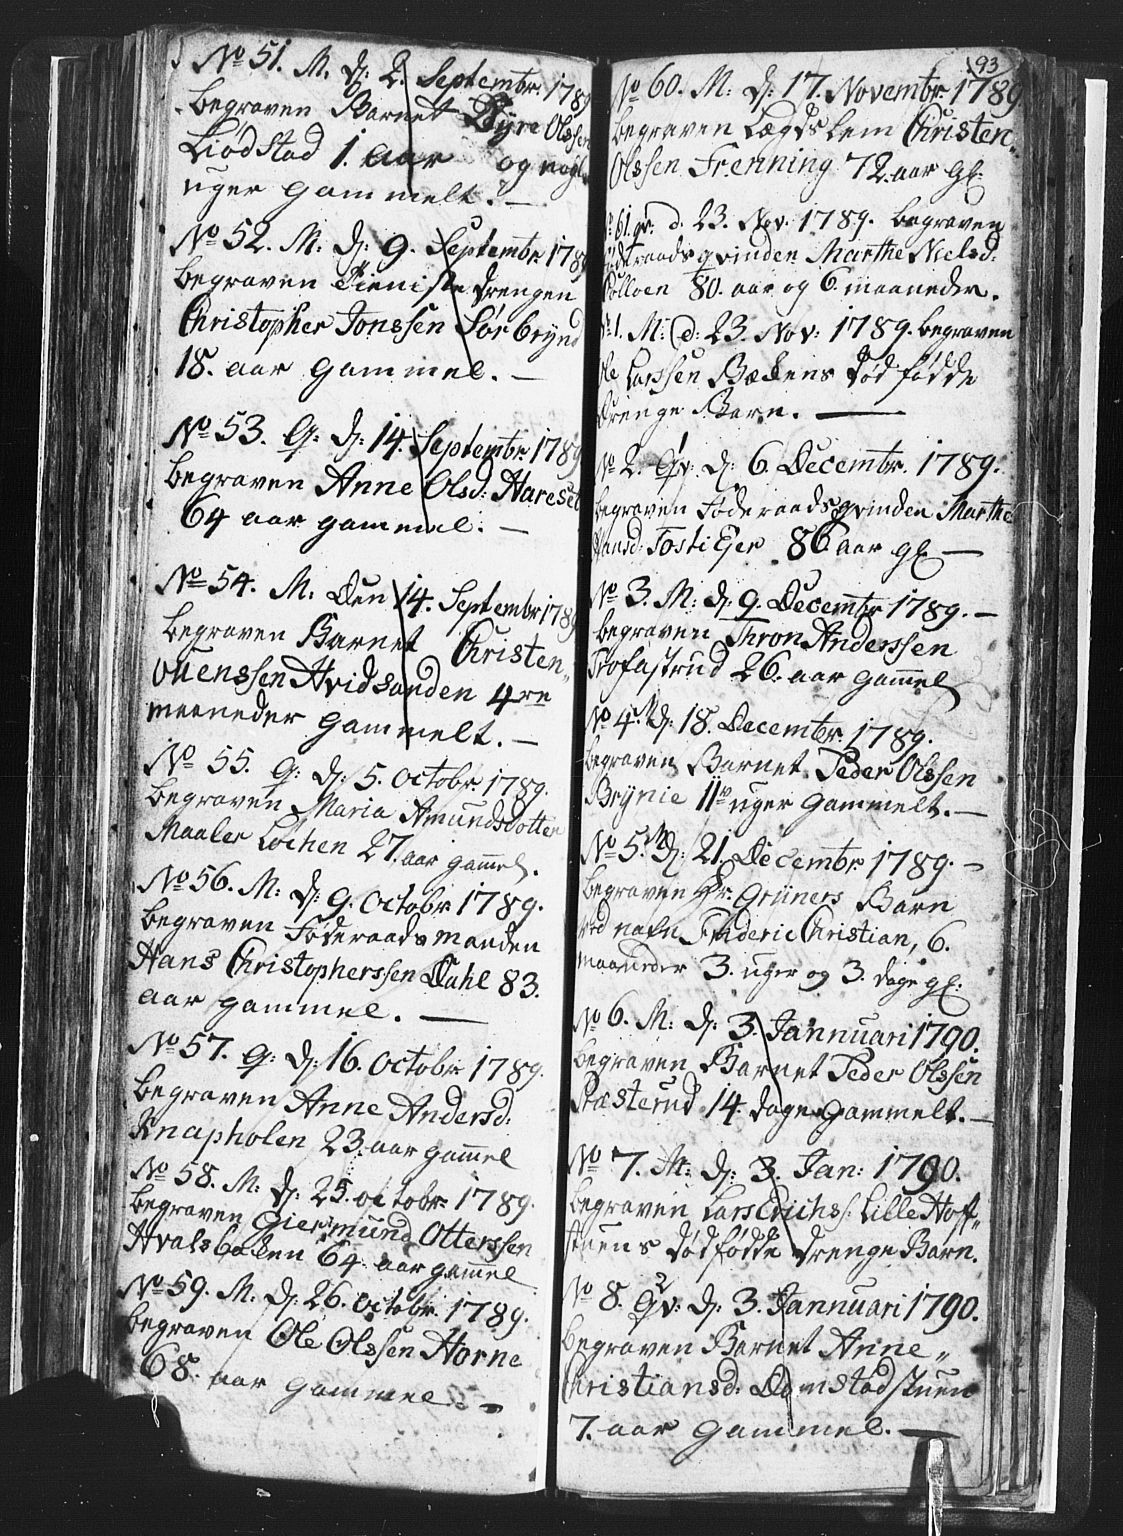 No 51. M. D: 2. Septembr. 1789
begraven Barnet Olssen
Liødstad 1. aar og nogl.
uger gammelt. —
No 52. M: D: 9. Septembr. 1789
begraven Tieniste drengen
Christopher Jonssen Sørbrynd
18. aar gammel. —
No 53. Q: D: 14. Septembr. 1789
begraven Anne Olsd: Hareset
64 aar gammel. —
No 54. M. Den 14. Septembr 1789
begraven Barnet Christen
Ouenssen Hvidsanden 4re
maaneder gammelt. —
No 55. Q: D: 5. Octobr. 1789.
begraven Maria Amundsdotter
Maaler Løchen 27. aar gammel.
No 56. M: D: 9. Octobr. 1789.
begraven Føderaads manden
Hans Christopherssen Dahl 83.
aar gammel. —
No 57. Q: D: 16. Octobr. 1789.
begraven Anne Andersd:
Knapholen 23. aar gammel
No 58. M: D: 25. Octobr. 1789.
begraven Giermund Otterssen
Hvalsbakken 64 aar gammel
No 59. M. D: 26. Octobr. 1789.
begraven Ole Olssen Horne
68. aar gammel. —
93
No 60. M: D: 17. Novembr. 1789
begraven Lægdslem Christen
Olssen Frenning 72. aar gl.
No 61. qv: d. 23. Nov. 1789. begraven
qvinden Marthe Nielsd:
80. aar og 6. maaneder.
No 1. M: d: 23. Nov: 1789. begraven
Ole Larssen Bækens død fødde
drenge Barn. —
No 2. Qv: D: 6. Decembr. 1789.
begraven Føderaadsqvinden Marthe
Hansd: Tostiejer 86 aar gl. —
No 3. M: D: 9. Decembr 1789. —
begraven Thron Anderssen
Trofastrud 26. aar gammel
No 4. M D: 18. Decembr. 1789.
begraven Barnet Peder Olssen
Brynie 11 uger gammelt. —
No 5. M D: 21. Decembr. 1789. —
begraven Hr. Grüners Barn
ved nafn Frideric Christian, 6.
maaneder 3. uger og 3. dage gl.
No 6. M. D: 3. Jannuari 1790.
begraven Barnet Peder Olssen
Præsterud 14. dage gammelt. —
No 7. M: D: 3. Jan: 1790.
begraven Lars Erichs: Lille Hoff
stuens dødfødde drenge Barn.
No 8. Qv: D: 3. Jannuari 1790.
begraven Barnet Anne
Christiansd: Domstadstuen
7. aar gammel. —